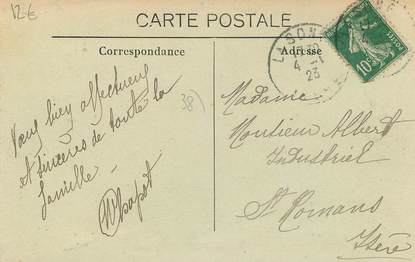 12 €
CARTE POSTALE
Correspondance
Adresse
LA SONE
4 - 1
23
10c
38)
Vœux bien affectueux
et sincères de toute la
famille -
Chapot
Madame
Monsieur Albert
Industriel
St Romans
Isère